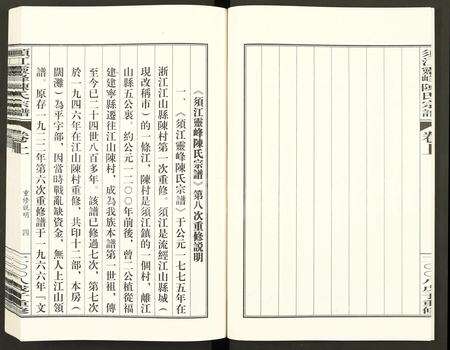 《須江靈峰陳氏宗譜》第八次重修説明
一、《須江靈峰陳氏宗譜》于公元一七七五年在
浙江江山縣陳村第一次重修。須江是流經江山縣城（
現改稱市）的一條江，陳村是須江鎮的一個村，離江
山縣五公裏。約公元一二〇〇年前後，曾二公植從福
建建寧縣遷往江山陳村，成為我族本譜第一世祖，傳
至今已二十四世八百多年。該譜已修過七次，第七次
於一九四六年在江山陳村重修，共印十二部，本房（
闊灘）為平字部，因當時戰亂缺資金，無人上江山領
譜。原存一九二二年第六次重修譜于一九六六年『文
須江靈峰陳氏宗譜
卷上
重修説明
四
二〇〇八戊子重修
須江靈峰陳氏宗譜
卷上
二〇〇八戊子重修